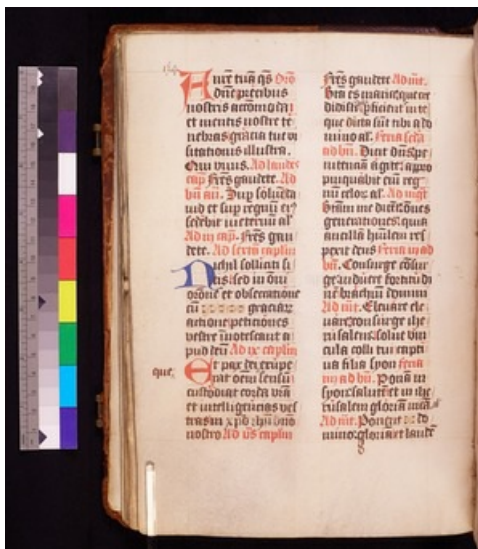 Aurē tuā qs Orō
dūe precibus
nostris accomoda
et mentis nostre te
nebras gracia tue vi
sitationis illustra.
Qui vivis. Ad laudes
cap̄ Fr̄es gaudete. Ad
bn̄ aū. Sup soliū da
uid et sup regnū eiꝰ
sedebit in eternū al
Ad iij cap̄. Fr̄es gau
dete. Ad sextā caplm
Nichil solliciti si
tis sed in om̄i
or̄one et obsecratione
cū graciar
actione peticiones
vestre innotescant a
pud deū Ad ix caplm
Et pax dei exupe
que
rat om̄em sensū
custodiat corda vr̄a
et intelligencias ves
tras in xp̄o ih̄u dn̄o
nostro Ad vs̄ caplm
Fr̄es gaudete Ad mt̄.
Bt̄a es maria que cre
didisti p̄ficient in te
que dicta sūt tibi a do
mino al. Feria scd̄a
ad bn̄. Dicit dn̄s pe
nitenciā agite appro
pinquabit eni regnū
celor al. Ad mgt̄
Bt̄am me dicēt om̄es
generationes quia
ancillā humilem res
pexit deus Feria iij ad
bn̄. Consurge cōsur
ge induere fortitudi
nē brachiū domini
Ad mt̄. Elevare ele
vare consurge ihe
rusalem solue vin
cula colli tui capti
va filia syon Feria
iiij ad bn̄. Ponā in
syon salutē et in ihe
rusalem gloriā meā al
Ad mt̄. Pongent do
mino gloriā et laudē